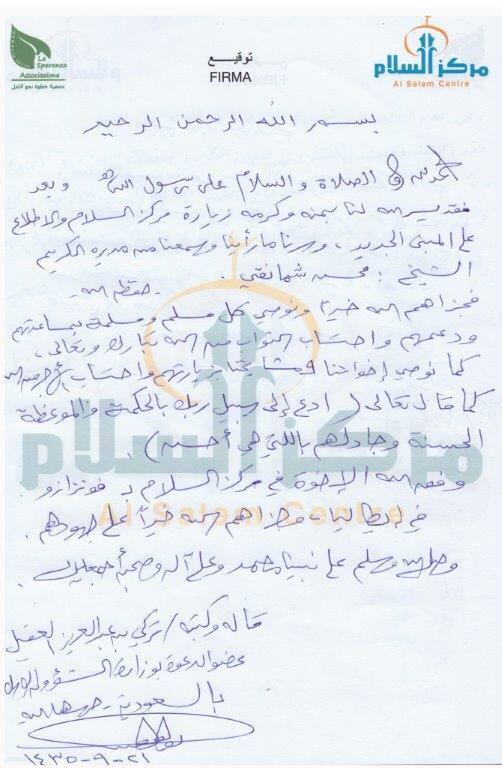 La Speranza Associazione
جمعية خطوة نحو الأمل
توقيع
FIRMA
مركز السلام
Al Salam Centre
بسم الله الرحمن الرحيم
الحمد لله والصلاة والسلام على رسول الله وبعد
فقد يسر الله لنا بمنه وكرمه زيارة مركز السلام والاطلاع
على المبنى الجديد، وسرنا ما رأينا وسمعنا من مديره الكريم
الشيخ : محسن شمانقي . حفظه الله .
فجزاهم الله خيراً ونوصي كل مسلم ومسلمة بمساعدتهم
ودعمهم واحتساب الثواب من الله تبارك وتعالى .
كما نوصي إخواننا بزيارتهم واحتساب
كما قال تعالى ( ادع إلى سبيل ربك بالحكمة والموعظة
الحسنة وجادلهم بالتي هي أحسن ) .
وفق الله الإخوة في مركز السلام د فونزازو .
في إيطاليا . وجزاهم الله خيراً على جهودهم .
وصلى الله وسلم على نبينا محمد وعلى آله وصحبه أجمعين .
مركز السلام
Al Salam Centre
قاله وكتبه / تركي بن عبدالعزيز العقيل
عضو الدعوة بوزارة الشؤون الإسلامية
بالسعودية - حرسها الله
١٤٣٥-٩-٢١